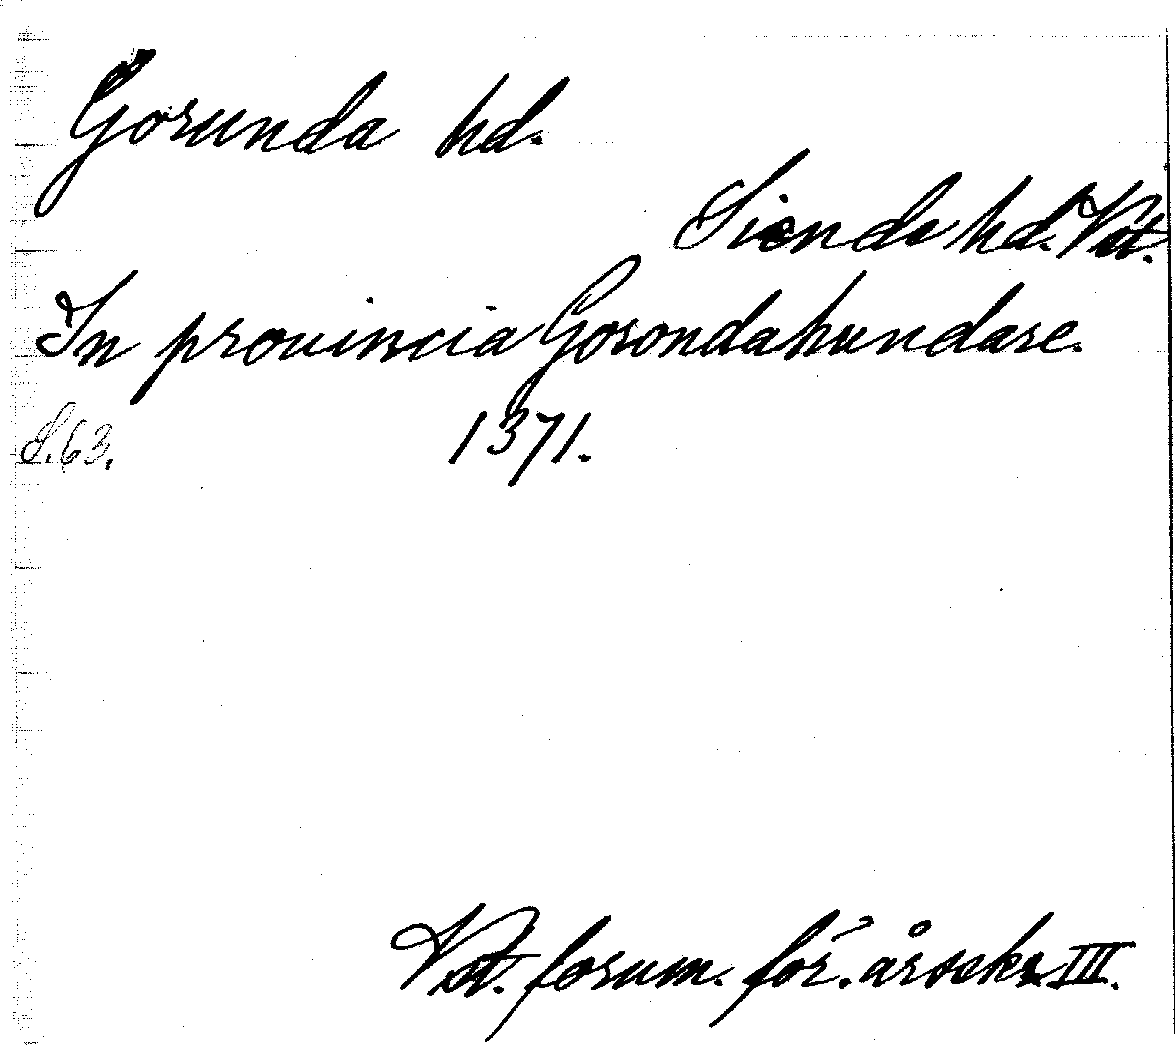 Gorunda hd.
Siende hd. Vst.
In prouincia Gorondahundare.
S. 63. 1371.
Vst. fornm. för. årsskr. III.